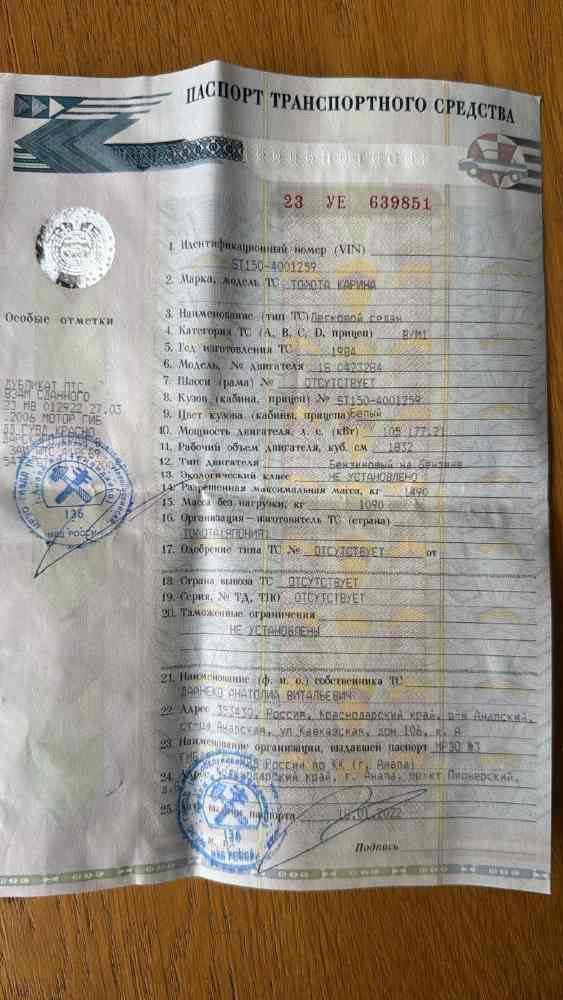 ПАСПОРТ ТРАНСПОРТНОГО СРЕДСТВА
23 УЕ 639851
1. Идентификационный номер (VIN)
ST150-4001259
2. Марка, модель ТС ТОЙОТА КАРИНА
3. Наименование (тип ТС) Легковой седан
4. Категория ТС (A, B, C, D, прицеп) B/M1
5. Год изготовления ТС 1984
6. Модель, № двигателя 1S 0423284
7. Шасси (рама) № ОТСУТСТВУЕТ
8. Кузов (кабина, прицеп) № ST150-4001259
9. Цвет кузова (кабины, прицепа) Белый
10. Мощность двигателя, л. с. (кВт) 105
11. Рабочий объем двигателя, куб. см 1832
12. Тип двигателя Бензиновый на бензине
13. Экологический класс НЕ УСТАНОВЛЕНО
14. Разрешенная максимальная масса, кг 1490
15. Масса без нагрузки, кг 1090
16. Организация-изготовитель ТС (страна)
ТОЙОТА(ЯПОНИЯ)
17. Одобрение типа ТС № ОТСУТСТВУЕТ от
18. Страна вывоза ТС ОТСУТСТВУЕТ
19. Серия, № ТД, ТПО ОТСУТСТВУЕТ
20. Таможенные ограничения
НЕ УСТАНОВЛЕНЫ
21. Наименование (ф. и. о.) собственника ТС
АНАТОЛИЙ ВИТАЛЬЕВИЧ
22. Адрес 353430, Россия, Краснодарский край, р-н Анапский,
ст-ца Анапская, ул Кавказская, дом 106, к. А
23. Наименование организации, выдавшей паспорт МРЭО №3
России по КК (г. Анапа)
24. Адрес Краснодарский край, г. Анапа, пр-кт Пионерский,
25. Дата выдачи паспорта 18.01.2022
М. П.
Подпись
Особые отметки
ДУБЛИКАТ ПТС
ВЗАМ СДАННОГО
23 МВ 012922 27.03
2006 МОТОР ГИБ
136
МВД РОССИИ
136
МВД РОССИИ